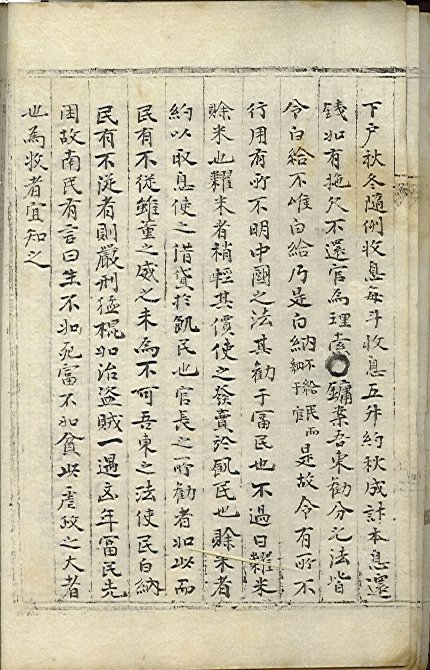 下戶秋冬隨例收息每斗收息五升約秋成計本息還
錢如有拖欠不還官為理索○鏞案吾東勸分之法皆
令白給不唯白給乃是白納不給民而納于官是故令有所不
行用有所不明中國之法其勸于富民也不過曰米
賒米也糶米者稍輕其價使之發賣於飢民也賒米者
約以取息使之借貸於飢民也官長之所勸者如此而
民有不從雖董之威之未為不可吾東之法使民白納
民有不從者則嚴刑猛棍如治盜賊一遇凶年富民先
困故南民有言曰生不如死富不如貧此虐政之大者
也為牧者宜知之